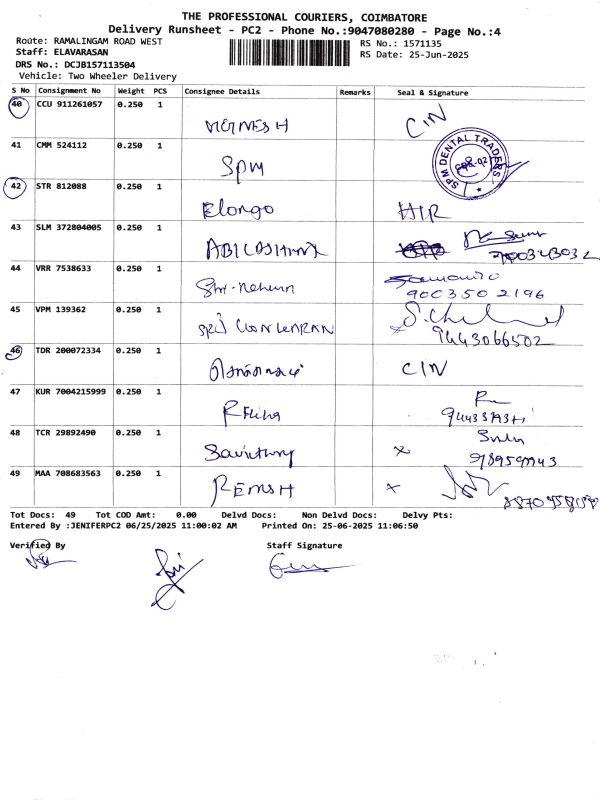 THE PROFESSIONAL COURIERS, COIMBATORE
Delivery Runsheet - PC2 - Phone No.:9047080280 - Page No.:4
Route: RAMALINGAM ROAD WEST
RS No.: 1571135
Staff: ELAVARASAN
RS Date: 25-Jun-2025
DRS No.: DCJB157113504
Vehicle: Two Wheeler Delivery
S No Consignment No Weight PCS Consignee Details Remarks Seal & Signature
40 CCU 911261057 0.250 1
CIN
41 CMM 524112 0.250 1
SPM
SPM DENTAL TRADERS
42 STR 812088 0.250 1
Elango HIR
43 SLM 372804005 0.250 1
44 VRR 7538633 0.250 1
9003502196
45 VPM 139362 0.250 1
9443066502
46 TDR 200072334 0.250 1
CIN
47 KUR 7004215999 0.250 1
48 TCR 29892490 0.250 1
49 MAA 708683563 0.250 1
Tot Docs: 49 Tot COD Amt: 0.00 Delvd Docs: Non Delvd Docs: Delvy Pts:
Entered By :JENIFERPC2 06/25/2025 11:00:02 AM Printed On: 25-06-2025 11:06:50
Verified By Staff Signature